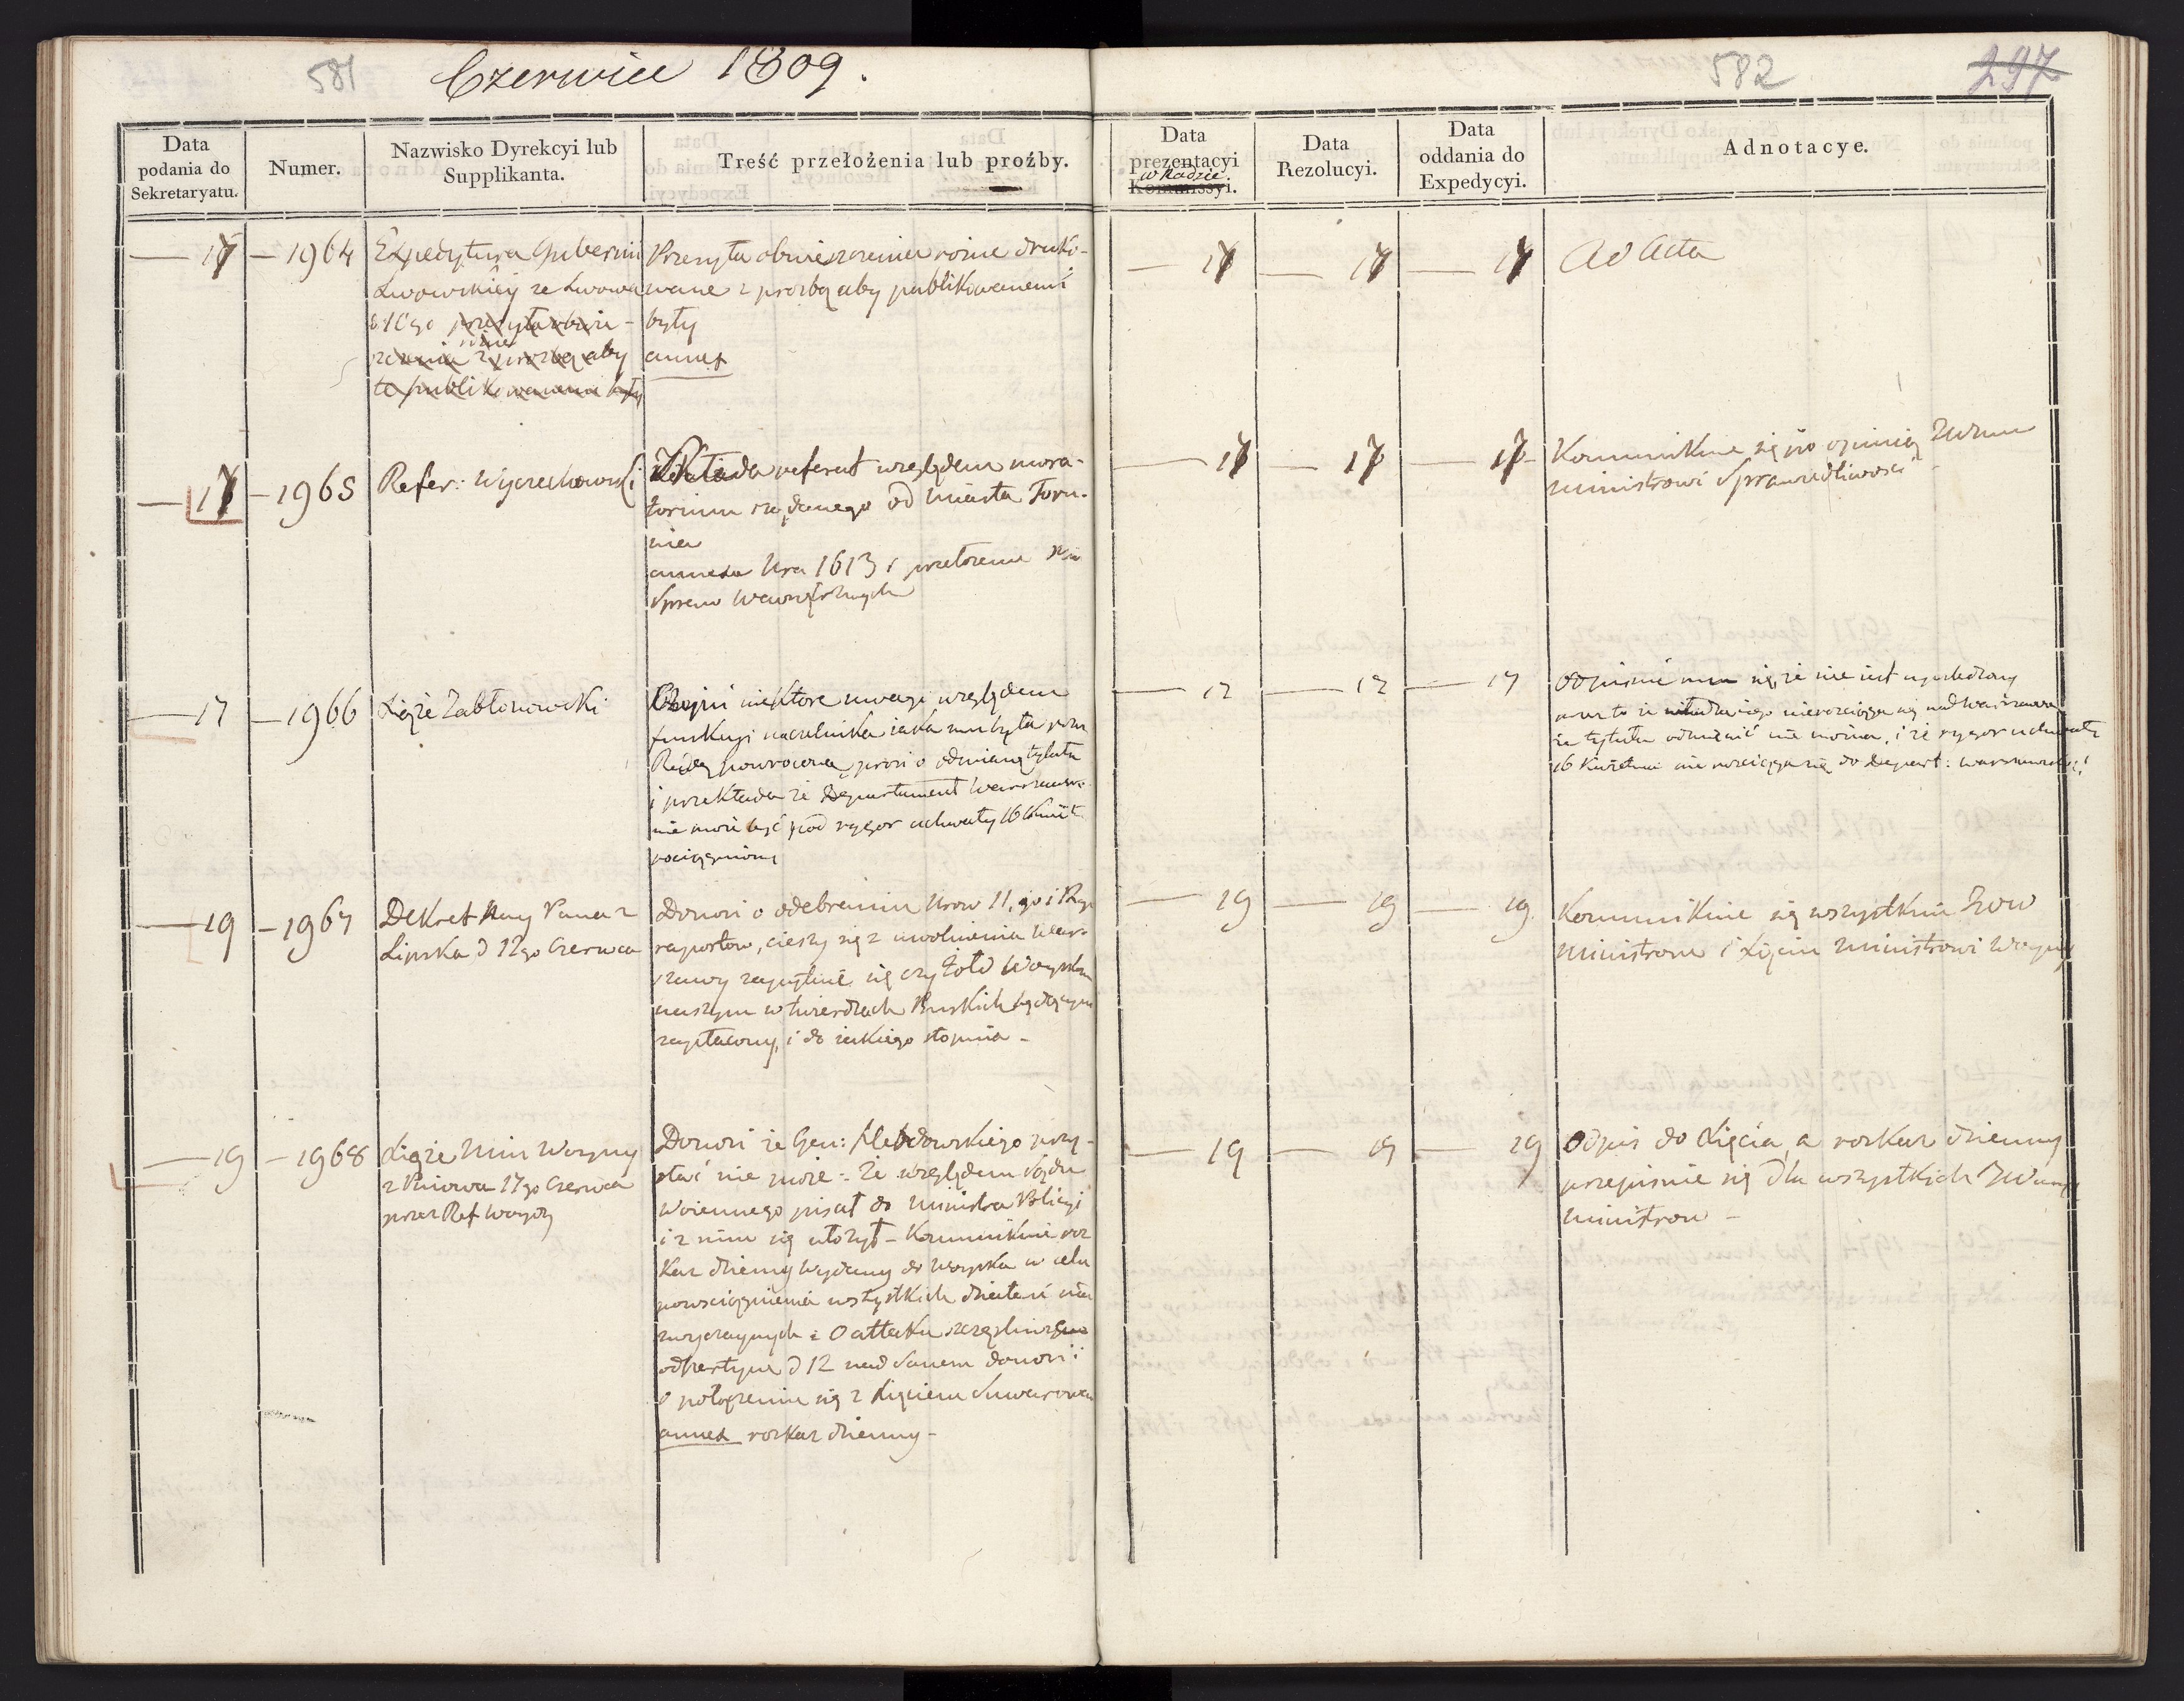 581
Czerwiec 1809.
582
297
Data
podania do
Sekretaryatu.
Numer.
Nazwisko Dyrekcyi lub
Supplikanta.
Treść przełożenia lub proźby.
Data
prezentacyi
w Radzie
Kommissyi.
Data
Rezolucyi.
Data
oddania do
Expedycyi.
Adnotacye.
— 17 — 1964
Expedytura Gubernii
Lwowskiey ze Lwowa
przesyła obwie-
różne
szczenia z prozbą aby
te publikowanemi były
Przesyła obwieszczenia rożne druko-
wane z prozbą aby publikowanemi
były
annex
— 17 — 17 — 17
Ad Acta
— 17 — 1965
Refer: Wyczechowski
Składa referat względem mora-
torium żądanego od Miasta Toru-
nia
annexa Nra 1613 i przełożenie
Spraw Wewnętrznych
— 17 — 17 — 17
Kommunikuie się po opinię
Ministrowi Sprawiedliwości
— 17 — 1966
Xiąże Jabłonowski
Czyni niektóre uwagi względem
funkcyi naczelnika iaka mu była przez
Radę powrocona, prosi o odmianę tytułu
i przekłada że Departament Warszaws.
nie może być pod rygor uchwały 16 Kwiet.
pociągniony
— 17 — 17 — 17
Odpisuie mu się, że nie iest
że tytułu odmienić nie można, i że rygor uchwały
16 Kwietnia nie rozciąga się do Depart: Warszawskiej
— 19 — 1967
Dekret Nay Pana z
Lipska d 12go Czerwca
Donosi o odebraniu Nrow 11,
raportow, cieszy się z uwolnienia War-
szawy zapytuie się czy żołd Woysku
naszym w twierdzach Pruskich będącym
zapłacony, i do iakiego stopnia -
— 19 — 19 — 19
Kommunikuie się wszystkim
Ministrom i Xięciu Ministrowi Woyny
— 19 — 1968
Xiąże Min Woyny
z Pniowa 17go Czerwca
przez Ref Woyny
Donosi że Gen: Hebdowskiego przy-
słać nie może: Że względem Sądu
Woiennego pisał do Ministra Policyi
i z nim się ułożył - Kommunikuie roz
kaz dzienny wydany do Woyska w celu
powsciągnienia wszystkich działań nad
zwyczaynych: O attaku szczęśliwym
odpartym d 12 nad Sanem donosi i
o połączeniu się z Xięciem Suwarowem
annex rozkaz dzienny -
— 19 — 19 — 19
Odpis do Xięcia, a rozkaz dzienny
przepisuie się dla wszystkich
Ministrow -